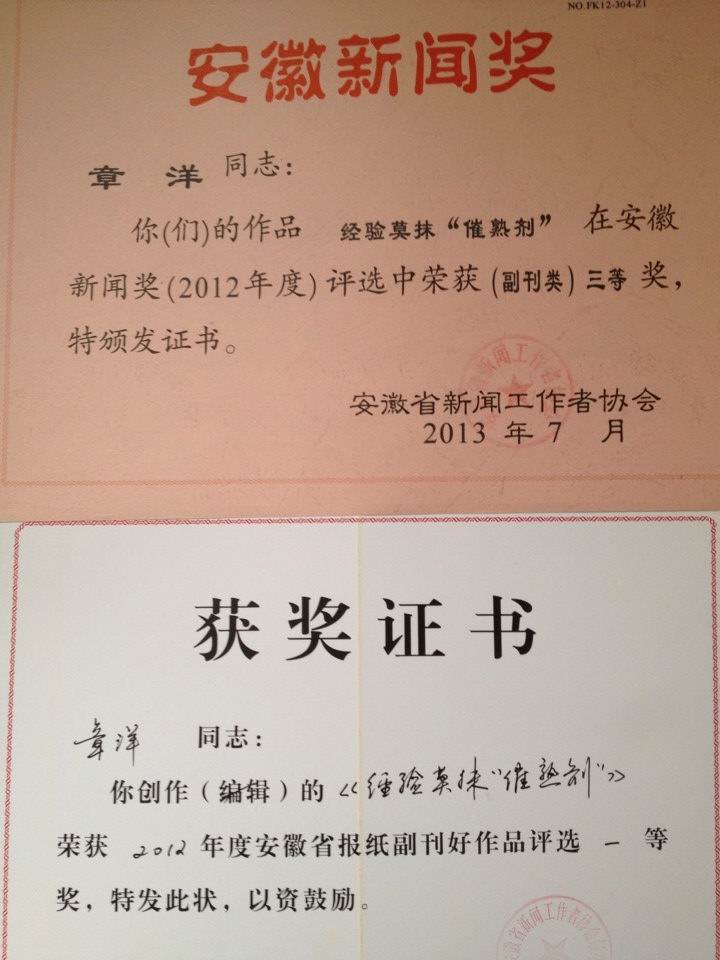 NO.FK12-304-Z1
安徽新闻奖
章 洋 同志：
你(们)的作品 经验莫抹“催熟剂” 在安徽
新闻奖(2012年度)评选中荣获(副刊类)三等 奖，
特颁发证书。
安徽省新闻工作者协会
2013 年 7 月
获奖证书
章洋 同志：
你创作（编辑）的《经验莫抹“催熟剂”》
荣获 2012 年度安徽省报纸副刊好作品评选 一 等
奖，特发此状，以资鼓励。
安徽省新闻工作者协会